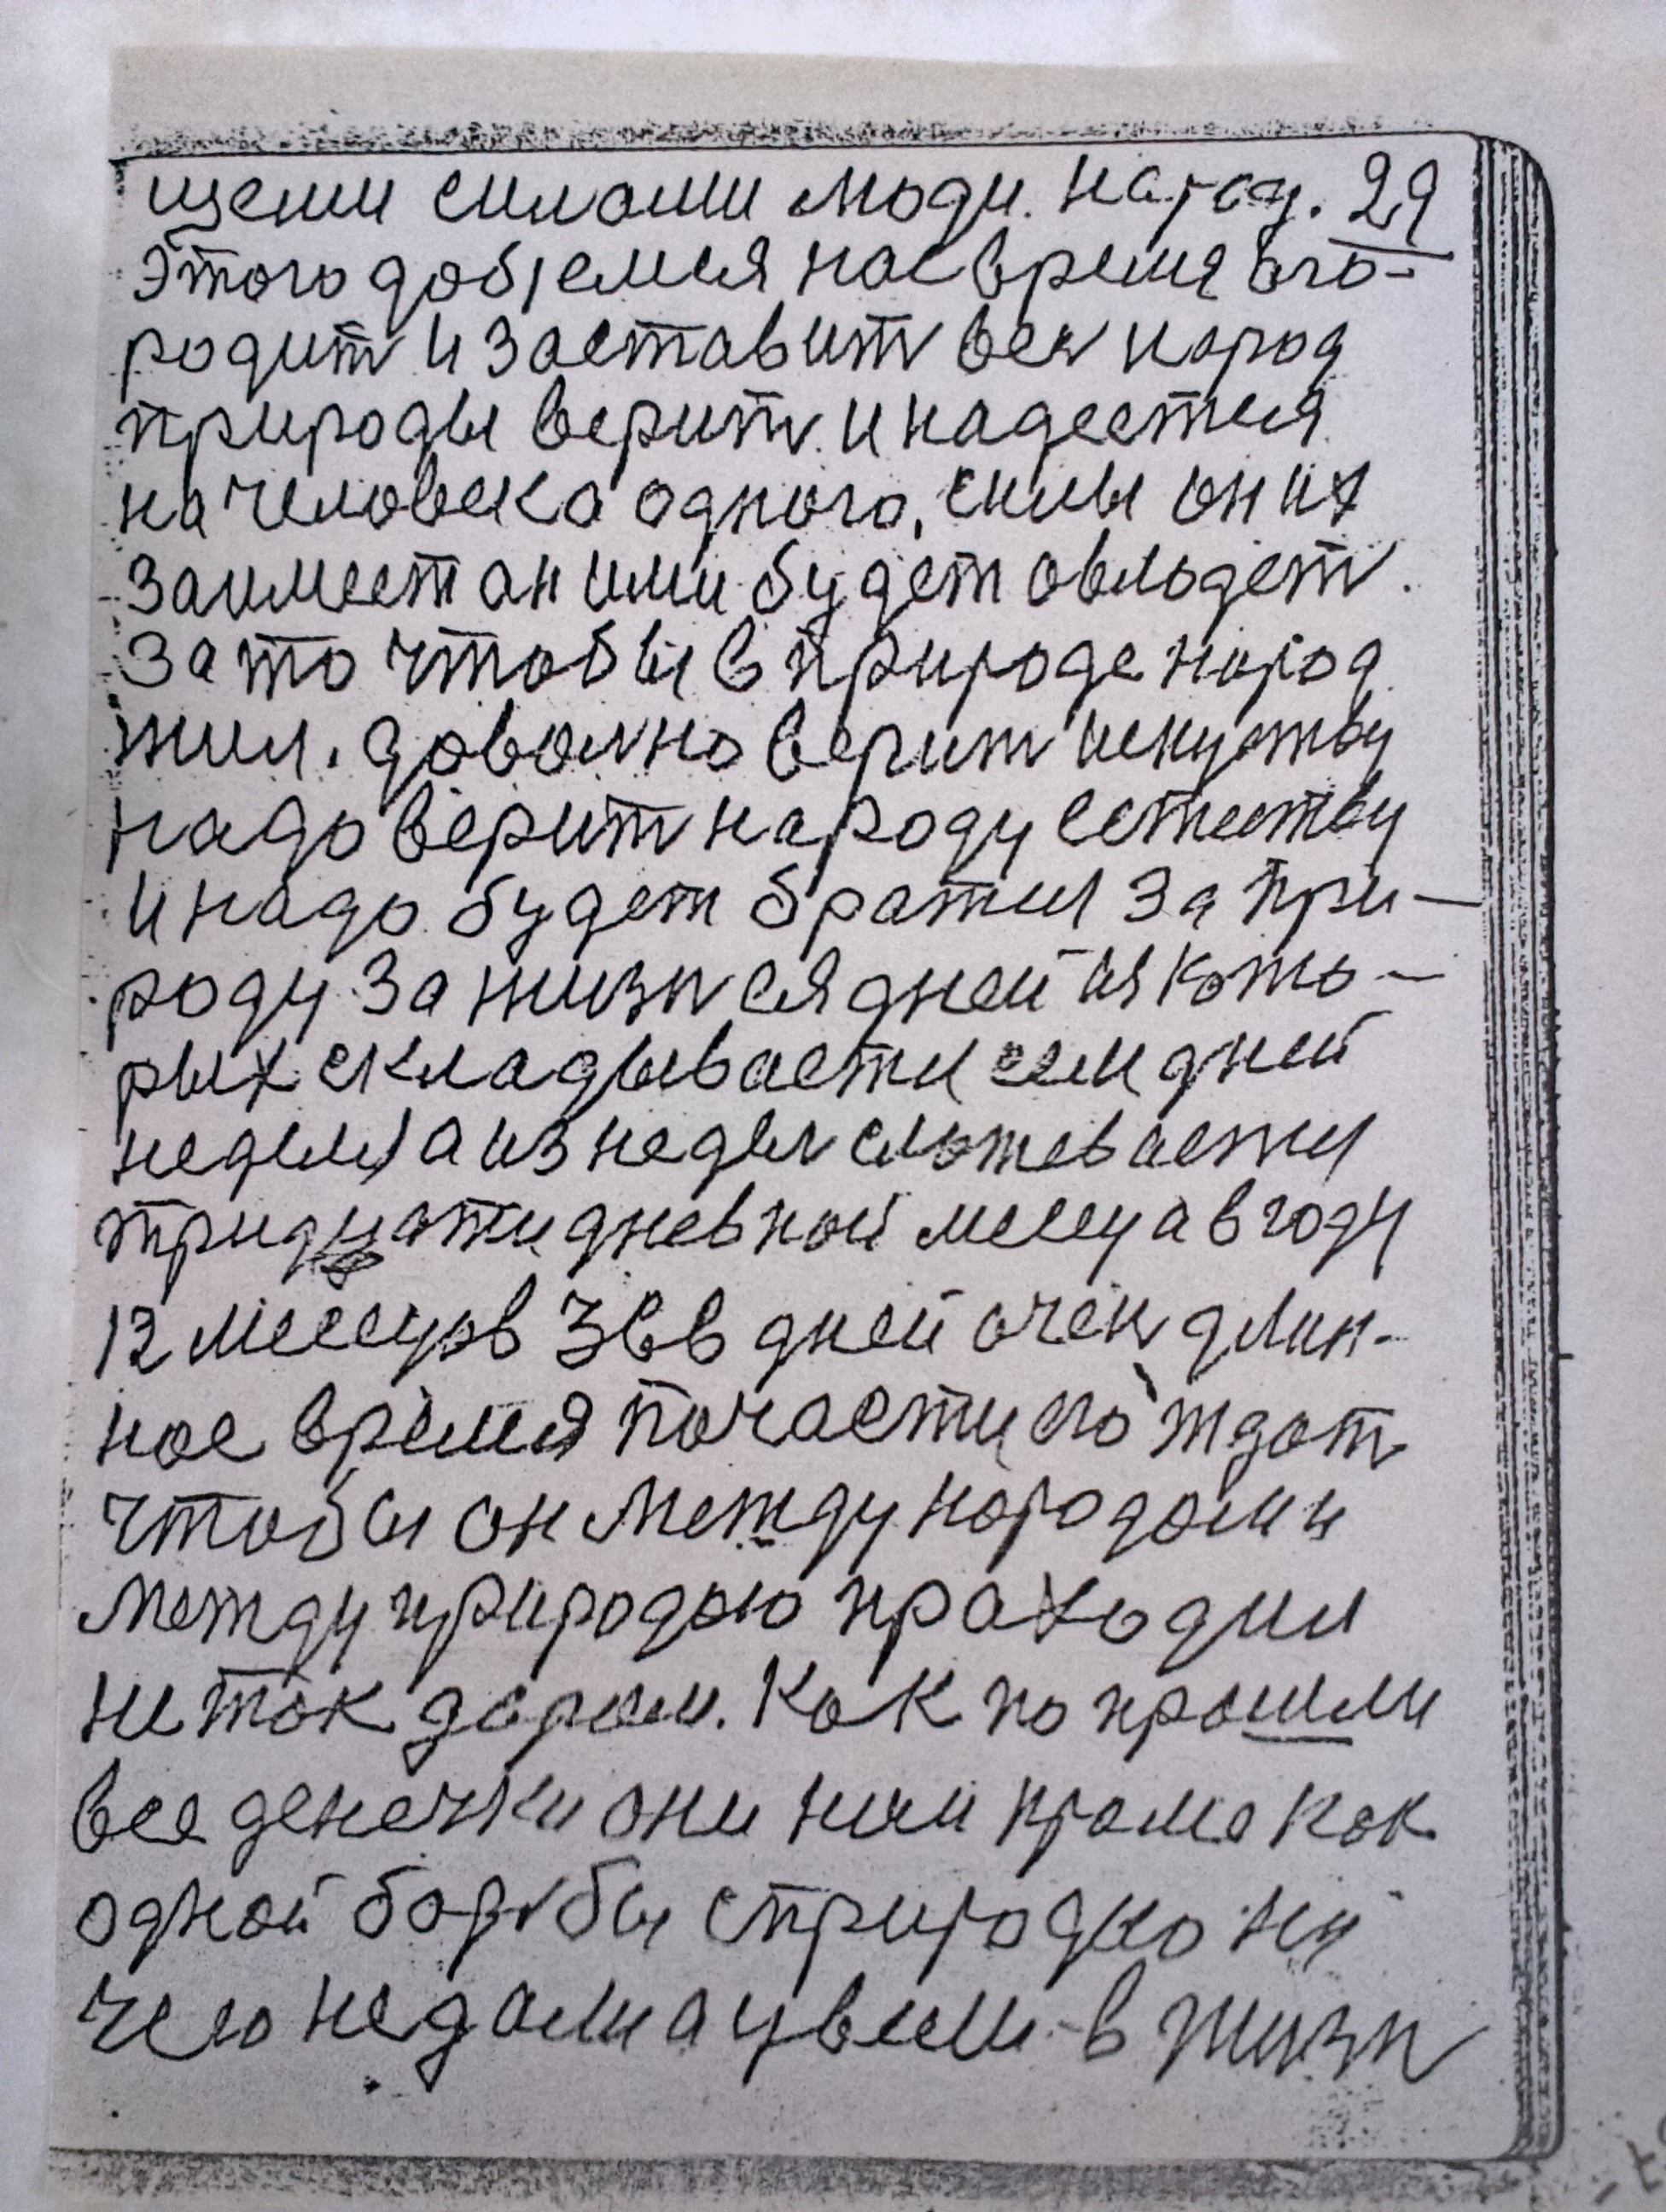 щеми силами люди. народ. 29
Этого добjемся нас время вго-
родит и заставит вен народ
природы верить и надеется
на человека одного, силы он их
заимеет он ими будет овлодеть.
За то чтобы в природе народ
жил. доволно верить искуству
надо верить народу естеству
и надо будет братися за при-
роду за жизнь ея дней их кото-
рых складываетси сем дней
недели а из недел сложеваетси
тридцати дневной месец а в году
12 месецов 366 дней очень длин-
ное время почасти его ждать
чтобы он между народом и
между природою праходил
не так даром. Как попрошли
все денечки они ним кроме как
одной борьбы с природою ни
чего не дали а увели в жизнь